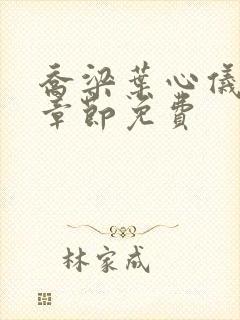 乔梁葉心儀
章節免費
林家成